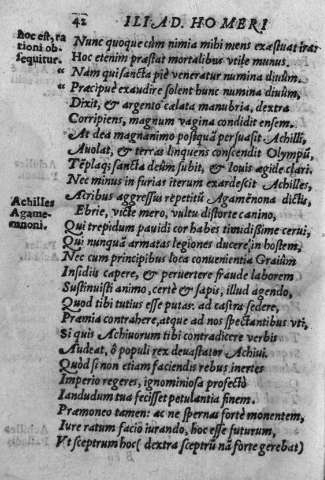 42 ILIAD. HOMERI
hoc est, rationi obsequitur.
Nunc quoque cùm nimia mihi mens exæstuat ira:
Hoc etenim præstat mortalibus vtile munus.
“ Nam qui sancta piè veneratur numina diuûm.
“ Præcipuè exaudire solent hunc numina diuûm,
Dixit, & argento cælata manubria, dextra
Corripiens, magnum vagina condidit ensem.
At dea magnanimo postquā persuasit Achilli,
Auolat, & terras linquens conscendit Olympū,
Tēplaq; sancta deûm subit, & Iouis ægide clari.
Nec minus in furias iterum exardescit Achilles,
Achilles Agamemnoni.
Acribus aggressus repetitū Agamēnona dictis,
Ebrie, victe mero, vultu distorte canino,
Qui trepidum pauidi cor habes timidissime cerui,
Qui nunquā armatas legiones ducere, in hostem,
Nec cum principibus loca conuenientia Graiûm
Insidiis capere, & peruertere fraude laborem
Sustinuisti animo, certè & sapis, illud agendo,
Quod tibi tutius esse putas. ad castra sedere,
Præmia contrahere, atque ad nos spectantibus vti,
Si quis Achiuorum tibi contradicere verbis
Audeat, ô populi rex deuastator Achiui.
Quòd si non etiam faciendis rebus inertes
Imperio regeres, ignominiosa profectò
Iandudum tua fecisset petulantia finem.
Præmoneo tamen: ac ne spernas fortè monentem,
Iure ratum facio iurando, hoc esse futurum,
Vt sceptrum hoc (dextra sceptrū nā fortè gerebat)